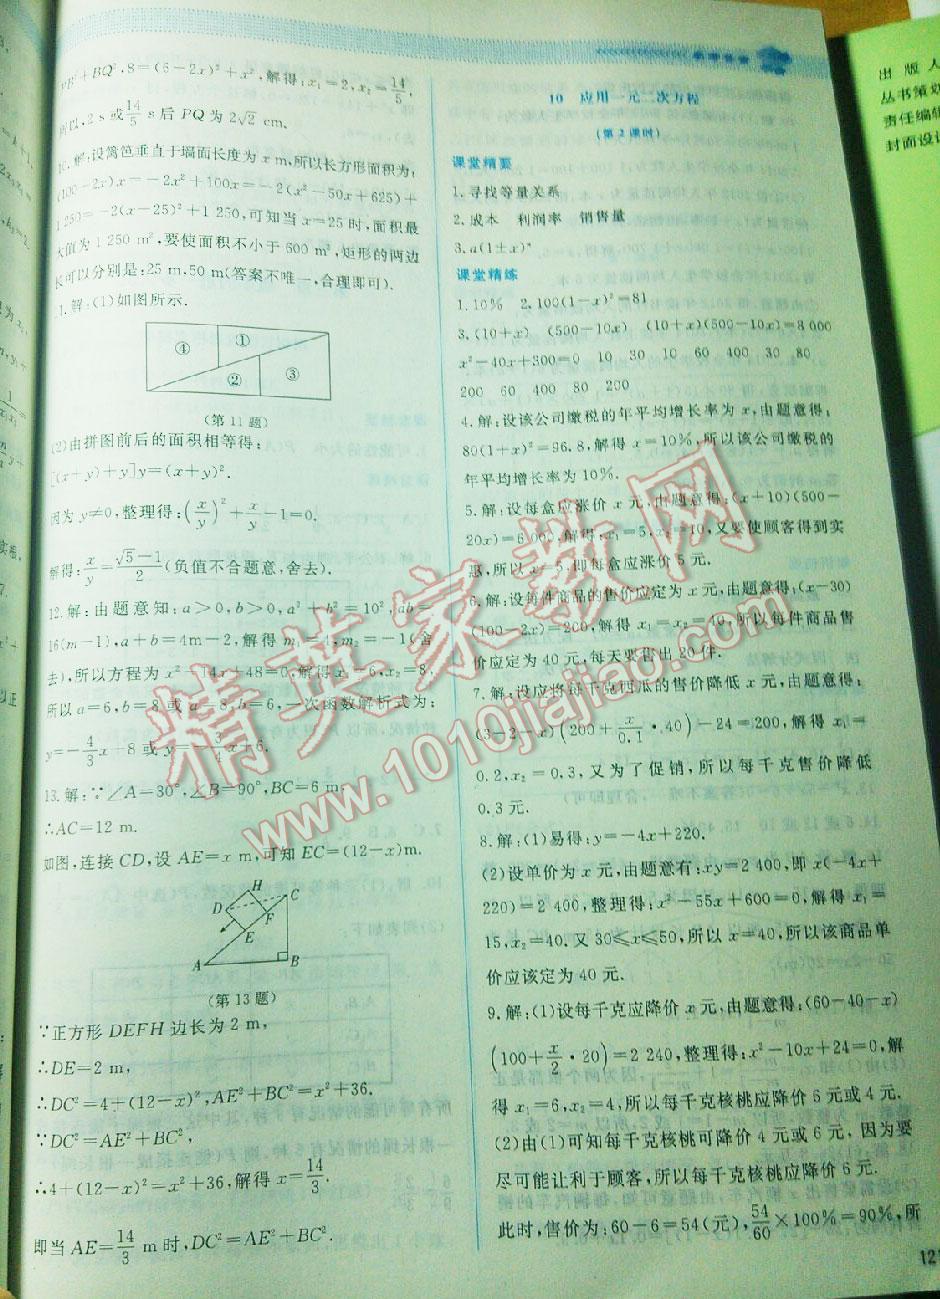 PB²+BQ²,8=(6-2x)²+x²,解得:x₁=2,x₂=14/5,
所以,2 s或14/5 s后PQ为2√2 cm.
解:设篱笆垂直于墙面长度为x m,所以长方形面积为:
(100-2x)x=-2x²+100x=-2(x²-50x+625)+
1 250=-2(x-25)²+1 250,可知当x=25时,面积最
大值为1 250 m²,要使面积不小于600 m²,矩形的两边
长可以分别是:25 m,50 m(答案不唯一,合理即可).
解:(1)如图所示.
④ ① ② ③
(第11题)
(2)由拼图前后的面积相等得:
[(x+y)+y]y=(x+y)².
因为y≠0,整理得:(x/y)²+x/y-1=0.
解得:x/y=(√5-1)/2(负值不合题意,舍去).
12.解:由题意知:a>0,b>0,a²+b²=10²,ab=
16(m-1),a+b=4m-2,解得m₁=4,m₂=-1(舍
去),所以方程为x²-14x+48=0,解得x₁=6,x₂=8,
所以a=6,b=8或a=8,b=6,一次函数解析式为:
y=-4/3x+8或y=-3/4x+6.
13.解:∵∠A=30°,∠B=90°,BC=6 m,
∴AC=12 m.
如图,连接CD,设AE=x m,可知EC=(12-x)m.
H D C F E A B
(第13题)
∵正方形DEFH边长为2 m,
∴DE=2 m,
∴DC²=4+(12-x)²,AE²+BC²=x²+36.
∵DC²=AE²+BC²,
∴4+(12-x)²=x²+36,解得x=14/3.
即当AE=14/3 m时,DC²=AE²+BC².
10 应用一元二次方程
(第2课时)
课堂精要
1.寻找等量关系
2.成本 利润率 销售量
3.a(1±x)ⁿ
课堂精练
1.10% 2.100(1-x)²=81
3.(10+x) (500-10x) (10+x)(500-10x)=8 000
x²-40x+300=0 10 30 10 60 400 30 80
200 60 400 80 200
4.解:设该公司缴税的年平均增长率为x,由题意得:
80(1+x)²=96.8,解得x=10%,所以该公司缴税的
年平均增长率为10%.
5.解:设每盒应涨价x元,由题意得:(x+10)(500-
20x)=6 000,解得:x₁=5,x₂=10,又要使顾客得到实
惠,所以x=5,即每盒应涨价5元.
6.解:设每件商品的售价应定为x元,由题意得:(x-30)
(100-2x)=200,解得x₁=x₂=40,所以每件商品售
价应定为40元,每天要售出20件.
7.解:设应将每千克西瓜的售价降低x元,由题意得:
(3-2-x)(200+x/0.1·40)-24=200,解得x₁=
0.2,x₂=0.3,又为了促销,所以每千克售价降低
0.3元.
8.解:(1)易得:y=-4x+220.
(2)设单价为x元,由题意有:xy=2 400,即x(-4x+
220)=2 400,整理得:x²-55x+600=0,解得x₁=
15,x₂=40.又30≤x≤50,所以x=40,所以该商品单
价应该定为40元.
9.解:(1)设每千克应降价x元,由题意得:(60-40-x)
(100+x/2·20)=2 240,整理得:x²-10x+24=0,解
得x₁=6,x₂=4,所以每千克核桃应降价6元或4元.
(2)由(1)可知每千克核桃可降价4元或6元,因为要
尽可能让利于顾客,所以每千克核桃应降价6元.
此时,售价为:60-6=54(元),54/60×100%=90%,所
精英家教网
www.1010jiajiao.com
出版人
丛书策划
责任编辑
封面设计